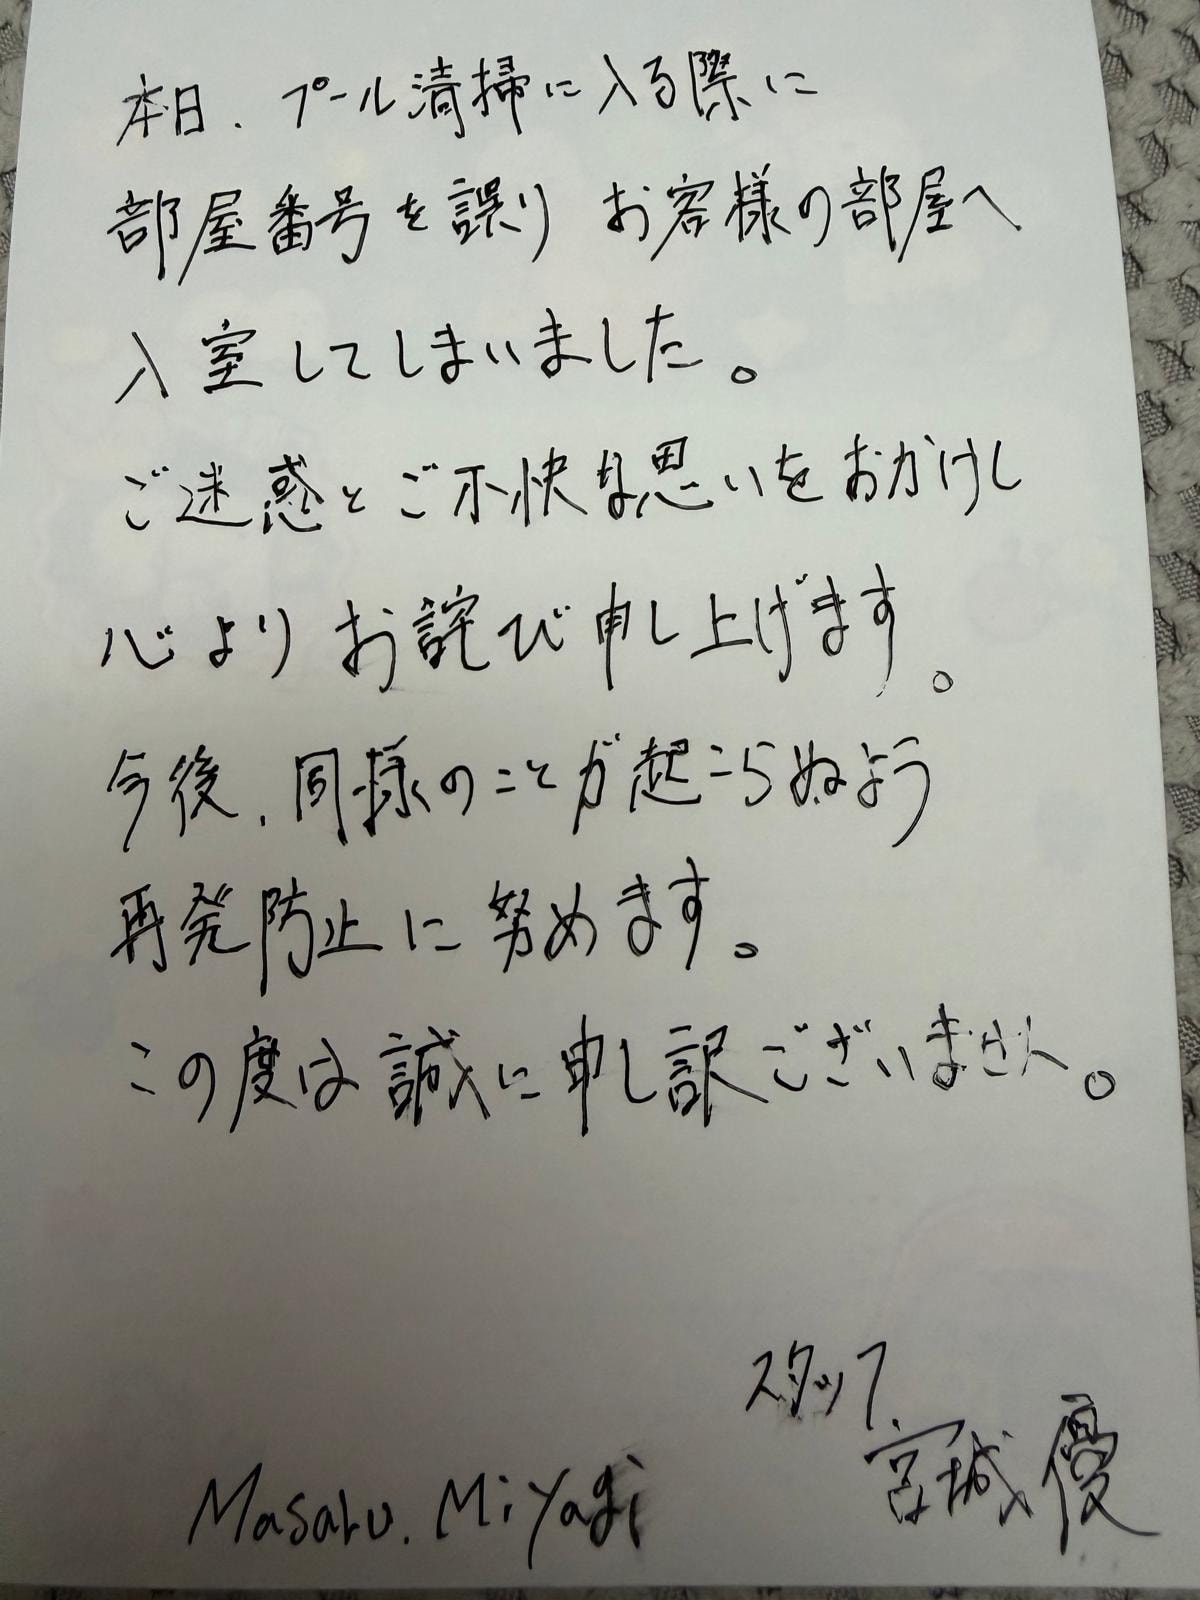 本日、プール清掃に入る際に
部屋番号を誤り お客様の部屋へ
入室してしまいました。
ご迷惑とご不快な思いをおかけし
心よりお詫び申し上げます。
今後、同様のことが起こらぬよう
再発防止に努めます。
この度は誠に申し訳ございません。
スタッフ、
宮城 優
Masaru. Miyagi